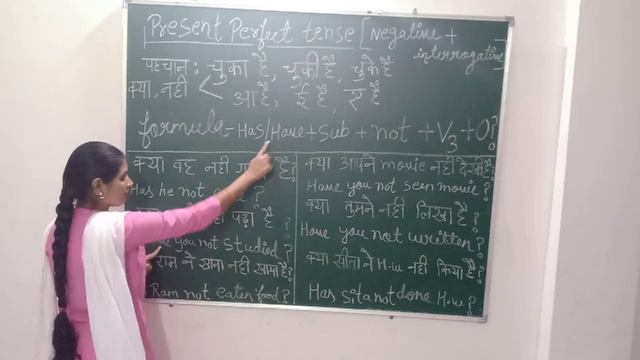 Present Perfect tense [Negative +
interrogative]
पहचान: चुका है, चुकी है, चुके है
क्या, नही < आ है, ई है, ए है
formula - Has/Have + Sub + not + V3 + O?
क्या वह नही है?
Has he not ?
पढ़ा है ?
you not studied?
राम ने खाना नही खाया है?
Ram not eaten food?
क्या आपने movie नही देखी है?
Have you not seen movie?
क्या तुमने नही लिखा है?
Have you not written?
क्या सीता ने H.w नही किया है?
Has Sita not done H.w?